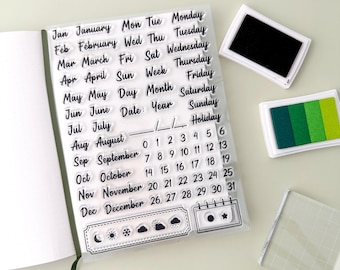 Jan January Mon Tue Monday
Feb February Wed Thu Tuesday
Mar March Fri Sat Wednesday
Apr April Sun Week Thursday
May May Day Month Friday
Jun June Date Year Saturday
Jul July Sunday
Aug August __/__/__ Holiday
Sep September 0 1 2 3 4 5 6
Oct October 7 8 9 10 11 12 13
Nov November 14 15 16 17 18 19 20
Dec December 21 22 23 24 25
26 27 28 29 30 31